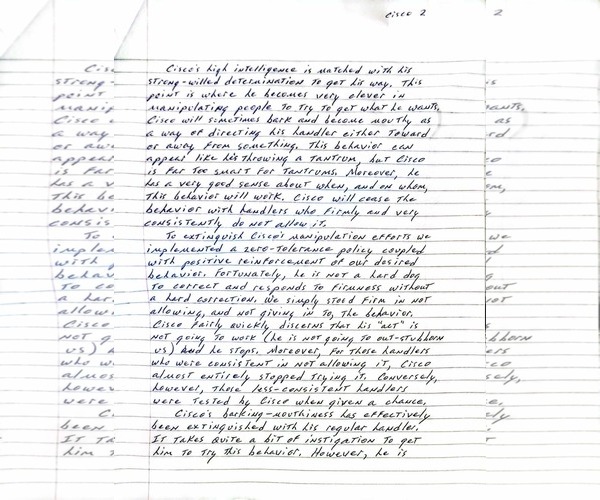 Cisco 2
Cisco's high intelligence is matched with his
strong-willed determination to get his way. This
point is where he becomes very clever in
manipulating people to try to get what he wants.
Cisco will sometimes bark and become mouthy as
a way of directing his handler either toward
or away from something. This behavior can
appear like he's throwing a tantrum, but Cisco
is far too smart for tantrums. Moreover, he
has a very good sense about when, and on whom,
this behavior will work. Cisco will cease the
behavior with handlers who firmly and very
consistently do not allow it.
To extinguish Cisco's manipulation efforts we
implemented a zero-tolerance policy coupled
with positive reinforcement of our desired
behavior. Fortunately, he is not a hard dog
to correct and responds to firmness without
a hard correction. We simply stood firm in not
allowing, and not giving in to, the behavior.
Cisco fairly quickly discerns that his "act" is
not going to work (he is not going to out-stubborn
us) And he stops. Moreover, for those handlers
who were consistent in not allowing it, Cisco
almost entirely stopped trying it. Conversely,
however, those less-consistent handlers
were tested by Cisco when given a chance.
Cisco's barking-mouthiness has effectively
been extinguished with his regular handler.
It takes quite a bit of instigation to get
him to try this behavior. However, he is